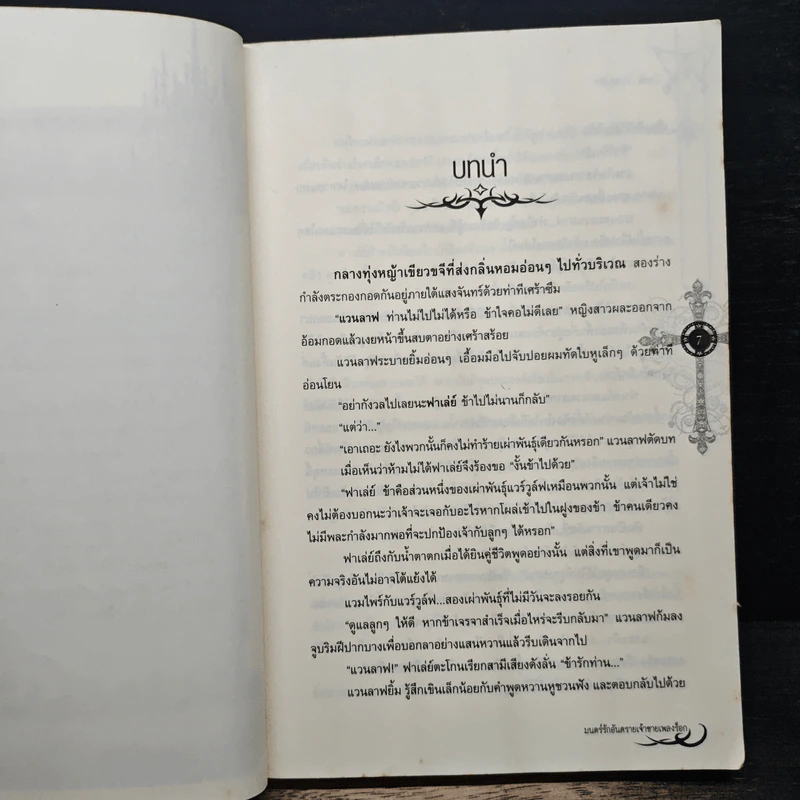 บทนำ
กลางทุ่งหญ้าเขียวขจีที่ส่งกลิ่นหอมอ่อนๆ ไปทั่วบริเวณ สองร่าง
กำลังตระกองกอดกันอยู่ภายใต้แสงจันทร์ด้วยท่าทีเศร้าซึม
“แวนลาฟ ท่านไม่ไปไม่ได้หรือ ข้าใจคอไม่ดีเลย” หญิงสาวผละออกจาก
อ้อมกอดแล้วเงยหน้าขึ้นสบตาอย่างเศร้าสร้อย
แวนลาฟระบายยิ้มอ่อนๆ เอื้อมมือไปจับปอยผมทัดใบหูเล็กๆ ด้วยท่าที
อ่อนโยน
“อย่ากังวลไปเลยนะฟาเล่ย์ ข้าไปไม่นานก็กลับ”
“แต่ว่า...”
“เอาเถอะ ยังไงพวกนั้นก็คงไม่ทำร้ายเผ่าพันธุ์เดียวกันหรอก” แวนลาฟตัดบท
เมื่อเห็นว่าห้ามไม่ได้ฟาเล่ย์จึงร้องขอ “งั้นข้าไปด้วย”
“ฟาเล่ย์ ข้าคือส่วนหนึ่งของเผ่าพันธุ์แวร์วูล์ฟเหมือนพวกนั้น แต่เจ้าไม่ใช่
คงไม่ต้องบอกนะว่าเจ้าจะเจอกับอะไรหากโผล่เข้าไปในฝูงของข้า ข้าคนเดียวคง
ไม่มีพละกำลังมากพอที่จะปกป้องเจ้ากับลูกๆ ได้หรอก”
ฟาเล่ย์ถึงกับน้ำตาตกเมื่อได้ยินคู่ชีวิตพูดอย่างนั้น แต่สิ่งที่เขาพูดมาก็เป็น
ความจริงอันไม่อาจโต้แย้งได้
แวมไพร์กับแวร์วูล์ฟ...สองเผ่าพันธุ์ที่ไม่มีวันจะลงรอยกัน
“ดูแลลูกๆ ให้ดี หากข้าเจรจาสำเร็จเมื่อไหร่จะรีบกลับมา” แวนลาฟก้มลง
จูบริมฝีปากบางเพื่อบอกลาอย่างแสนหวานแล้วรีบเดินจากไป
“แวนลาฟ!” ฟาเล่ย์ตะโกนเรียกสามีเสียงดังลั่น “ข้ารักท่าน...”
แวนลาฟยิ้ม รู้สึกเขินเล็กน้อยกับคำพูดหวานหูชวนฟัง และตอบกลับไปด้วย
7
มนตร์รักอันตรายเจ้าชายเพลงร็อก